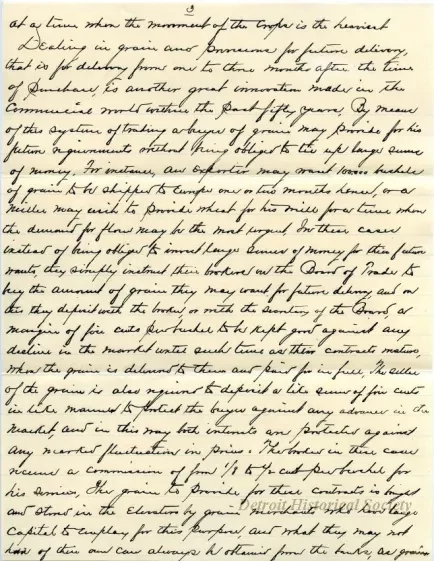 3
at a time when the movement of the Crops is the heaviest
Dealing in grain and provisions for future delivery,
that is for delivery from one to three month after the time
of Purchase, is another great innovation made in the
Commercial world within the past fifty years. By means
of this system of trading a buyer of grain may provide for his
future requirements without being obliged to tie up large sums
of money. For instance, an exporter may want bushels
of grain to be shipped to Europe one or two months hence, or a
Miller may wish to provide wheat for his Mill for a time when
the demand for flour may be the most urgent. In these cases
instead of being obliged to invest large sums of money for their future
wants, they simply instruct their brokers on the Board of Trade to
buy the amount of grain they may want for future delivery and on
this they deposit with the broker, or with the secretary of the Board, a
margin of five cents per bushel to be kept good against any
decline in the market until such time as their contracts mature,
when the grain is delivered to them and paid for in full. The seller
of the grain is also required to deposit a like sum of five cents
in like manner to protect the buyer against any advance in the
market, and in this way both interests are protected against
any marked fluctuation in prices. The broker in these cases
receives a commission of from 1/8 to 1/2 cent per bushel for
his services. The grain to provide for these contracts is bought
and stored in the Elevators by grain merchants who have large
Capital to employ for this purpose, and what they may not
have of their own can always be obtained from the banks, as grain
Detroit Historical Society